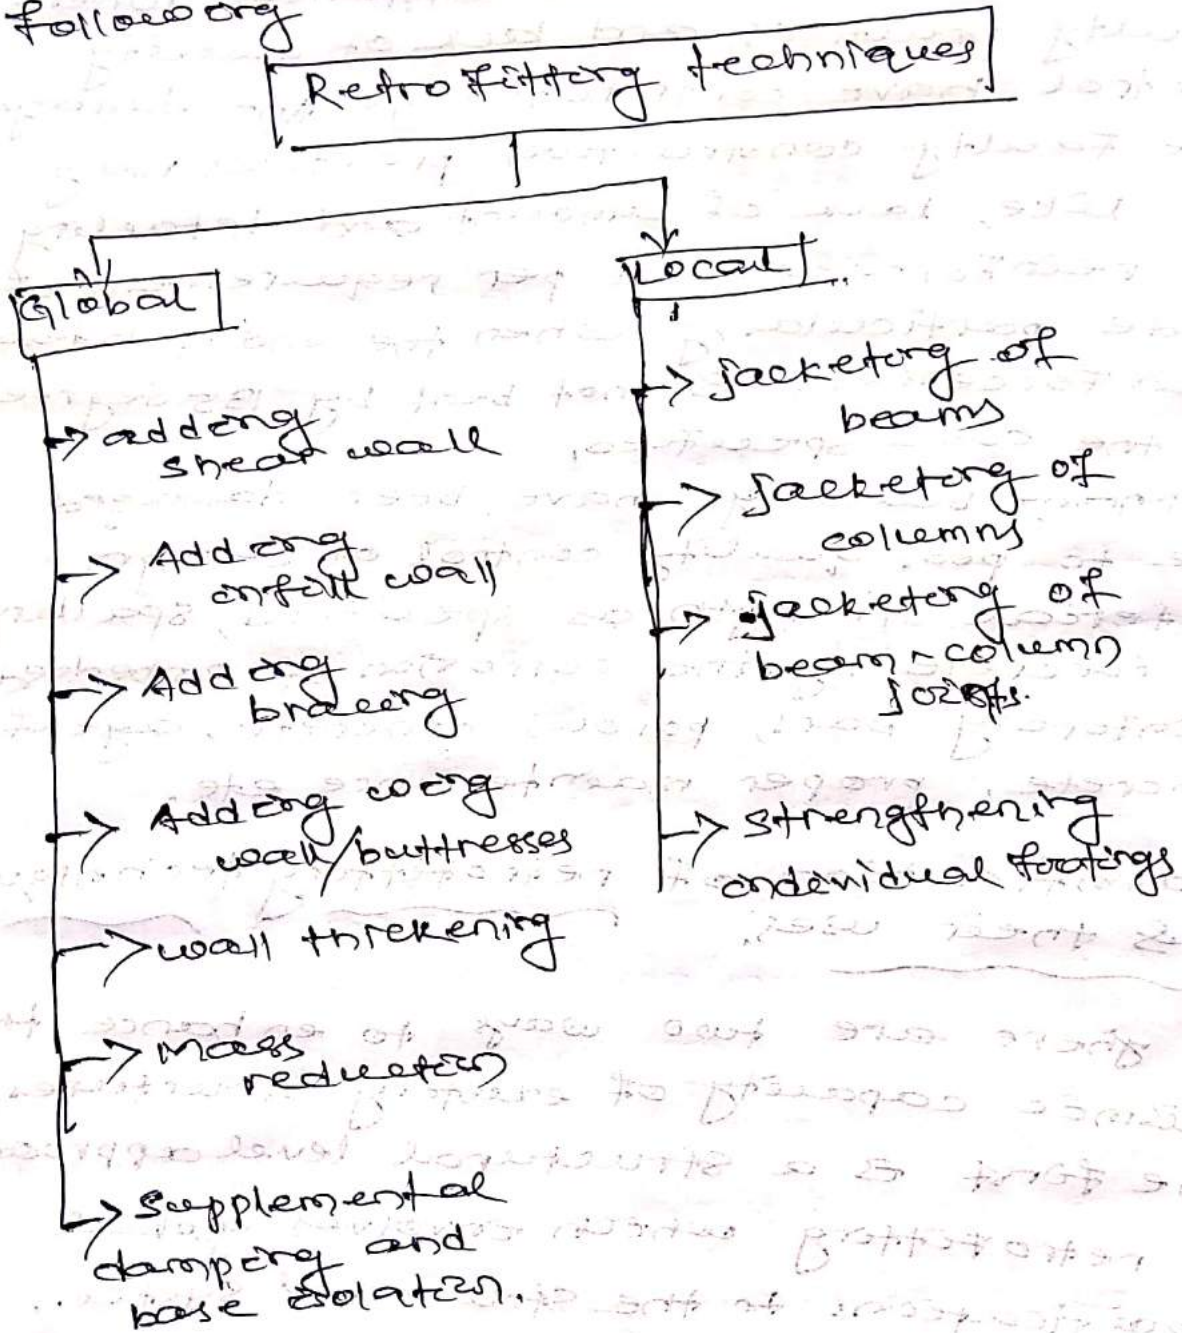 following
Retrofitting techniques
Global
adding
shear wall
Adding
infill wall
Adding
bracing
Adding wing
wall/buttresses
wall thickening
mass
reduction
Supplemental
damping and
base isolation.
Local
jacketing of
beams
Jacketing of
columns
jacketing of
beam-column
joints.
strengthening
individual footings